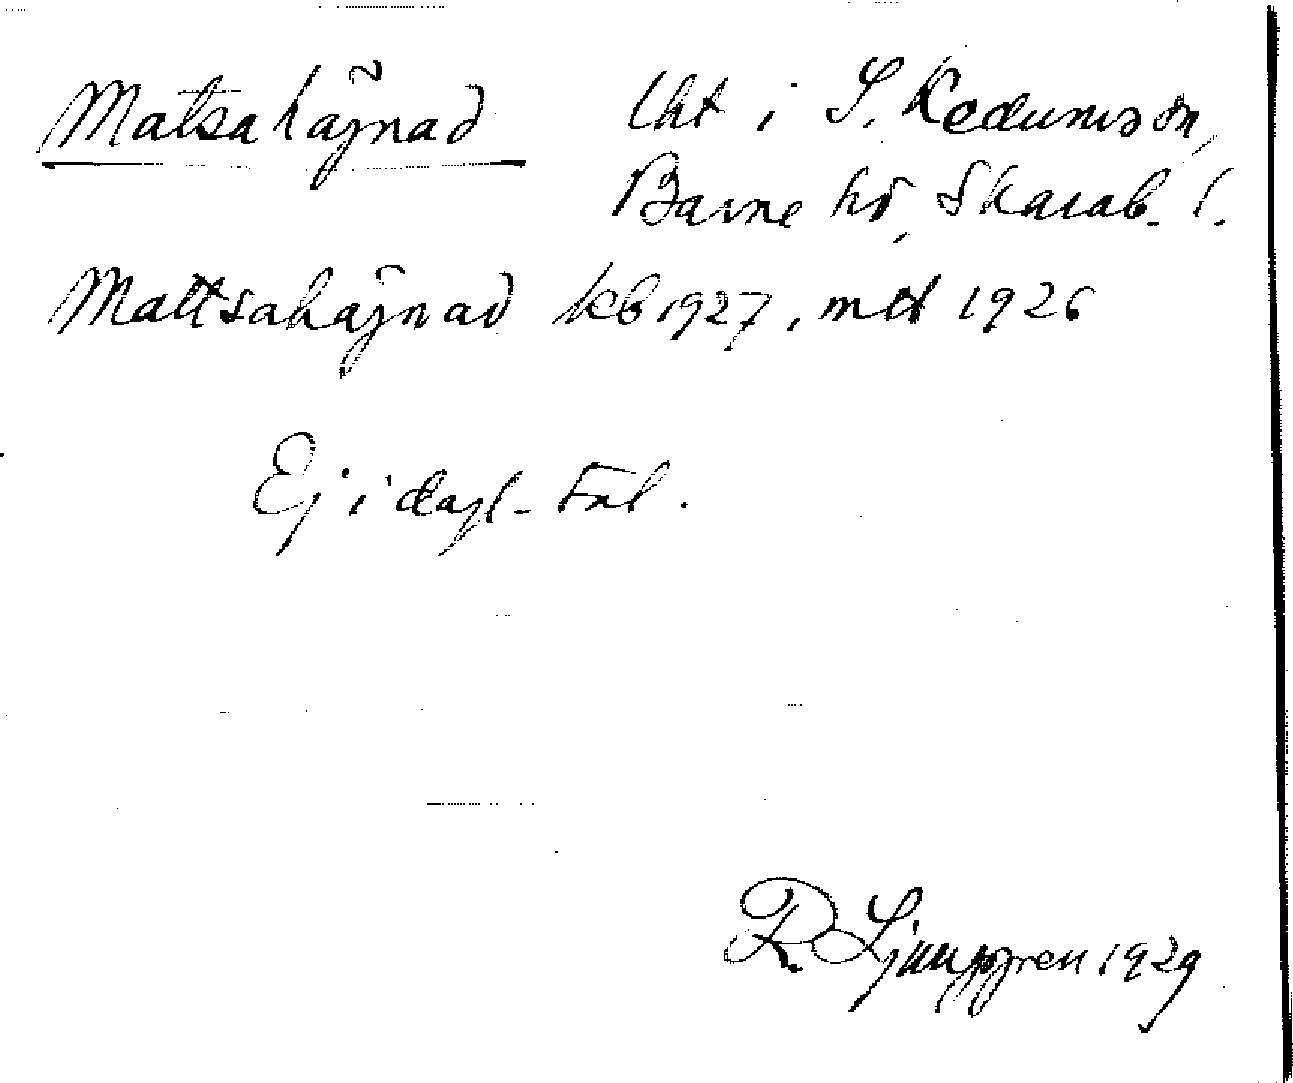 Matsahäjnad lht i S. Kedums sn,
Barne hd, Skarab. l.
Mattsahäjnad kb 1927, mtl 1926
Ej i dagl. tal.
R. Ljunggren 1929